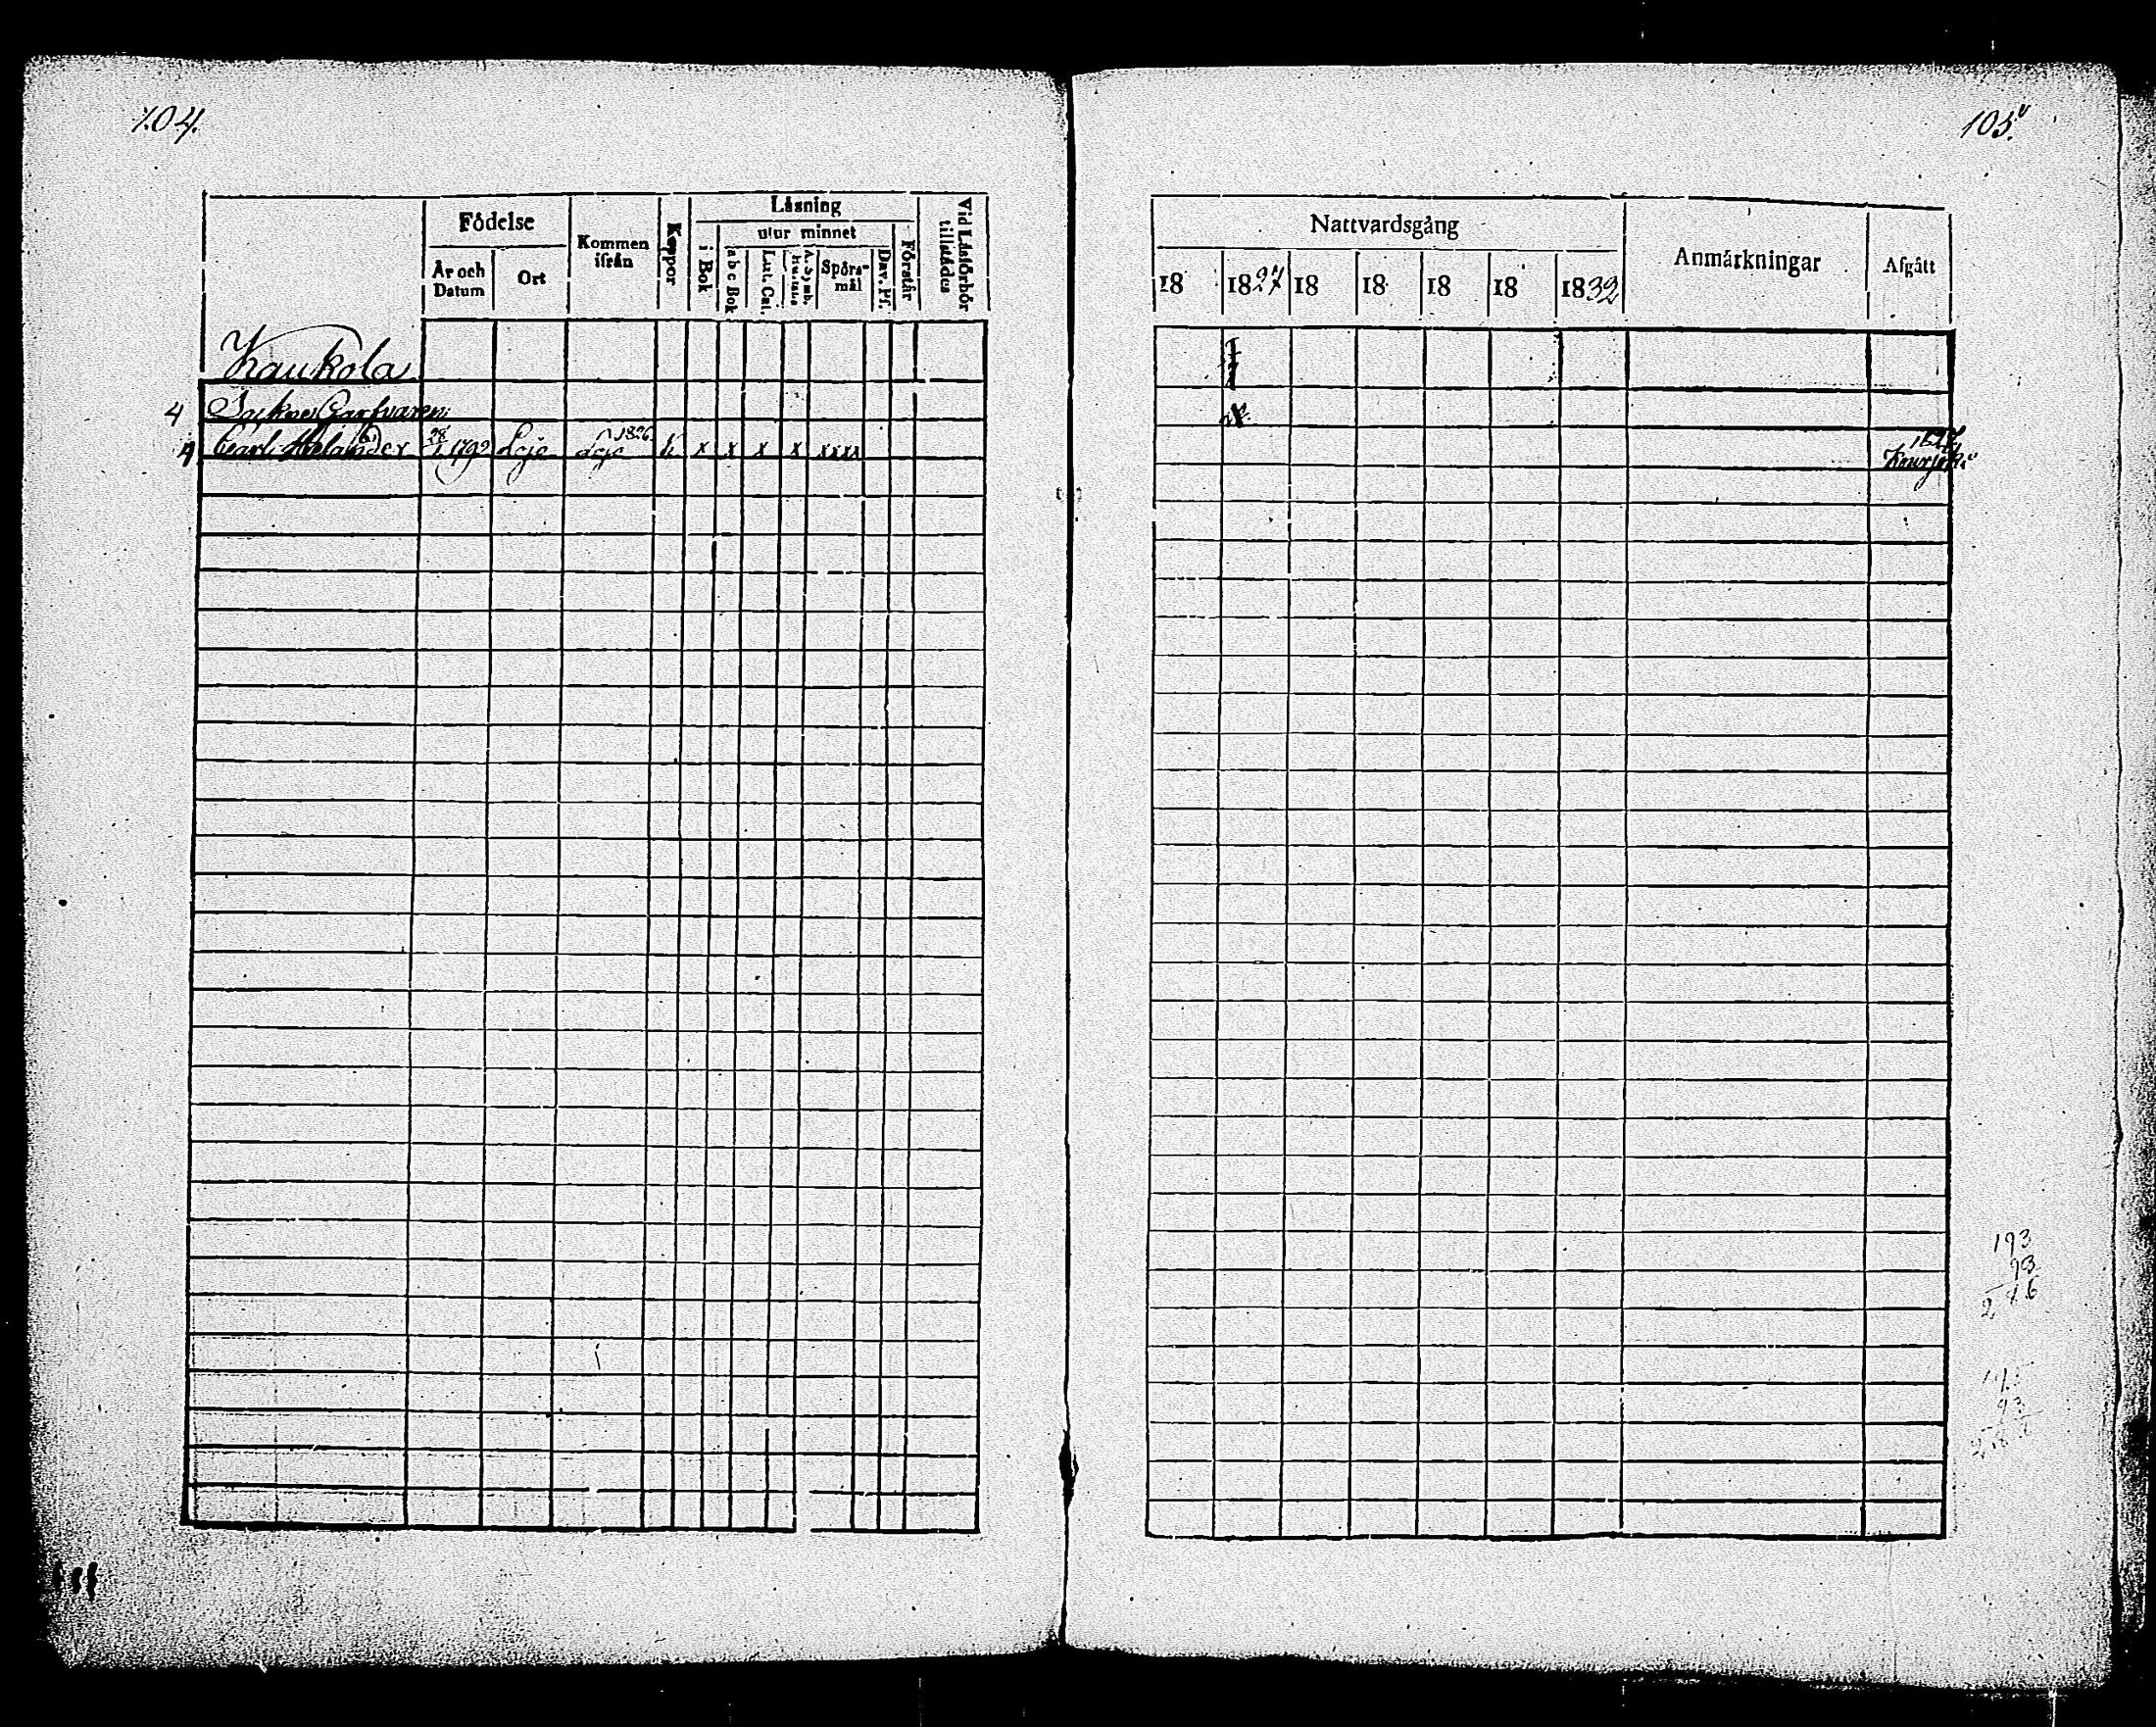 104.
Födelse
År och Datum
Ort
Kommen ifrån
Koppor
Läsning
i Bok
utur minnet
a b c Bok
Lut. Cat.
A. Symb. hustafla
Spörsmål
Dav. Ps.
Förstår
Vid Läsförhör tillstädes
Kaukola
4 Sockne Garfvaren
Carl Helander 28/1 1792 Lojo 1826 Lojo k x x x x xxxx
105.
Nattvardsgång
18 1827 18 18 18 18 1832
Anmärkningar
Afgått
1827
193
93